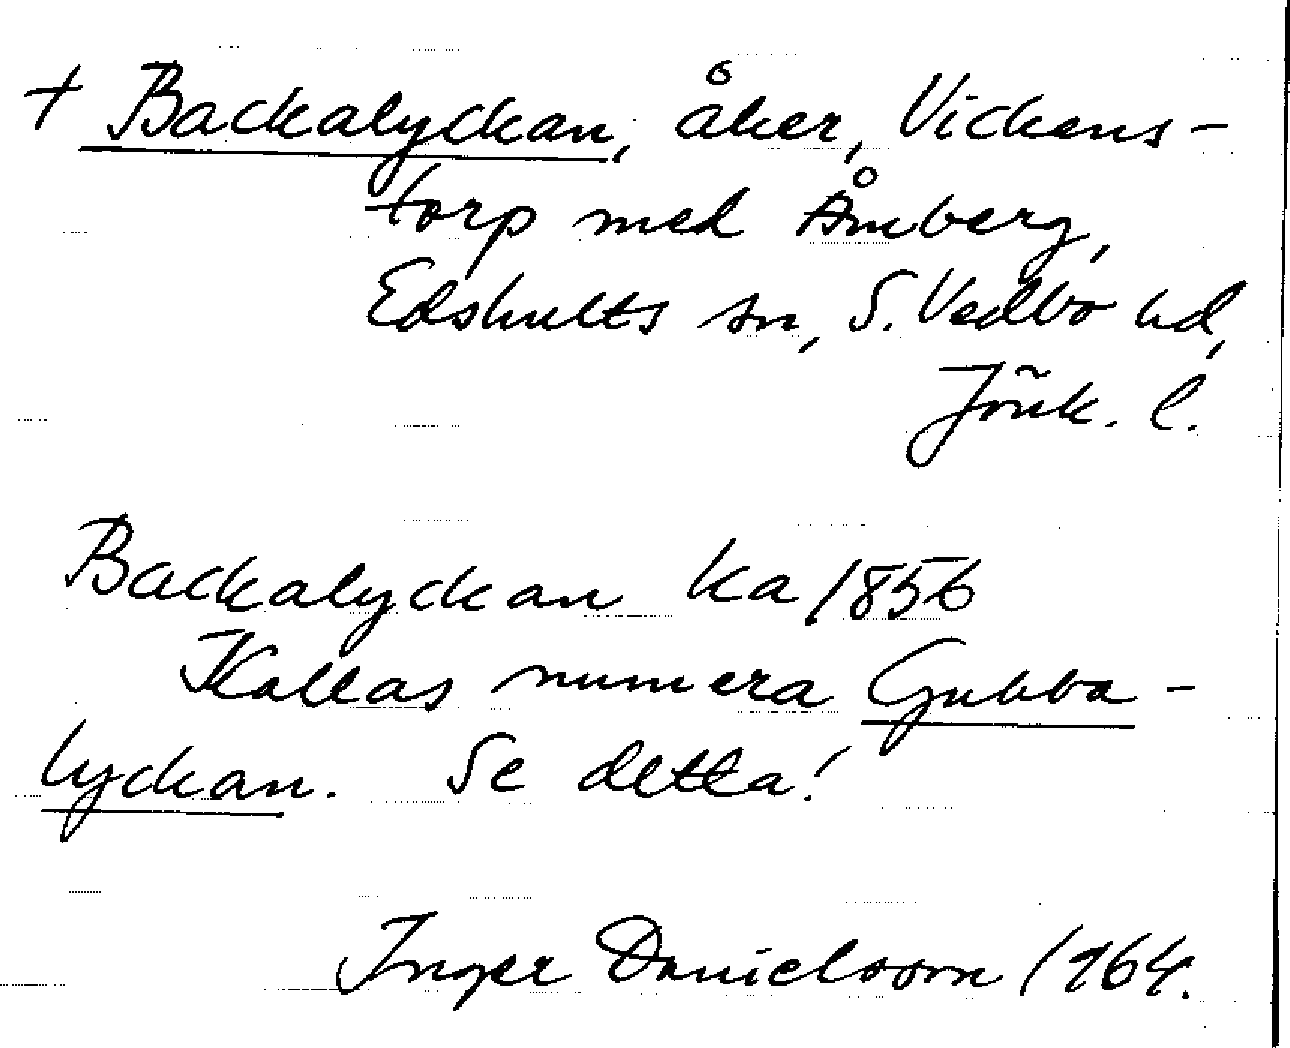 + Backalyckan, åker, Vickens-
torp med Åmberg,
Edshults sn, S. Vedbo hd,
Jönk. l.
Backalyckan ka 1856
Kallas numera Gubba-
lyckan. Se detta!
Inger Danielsson 1964.